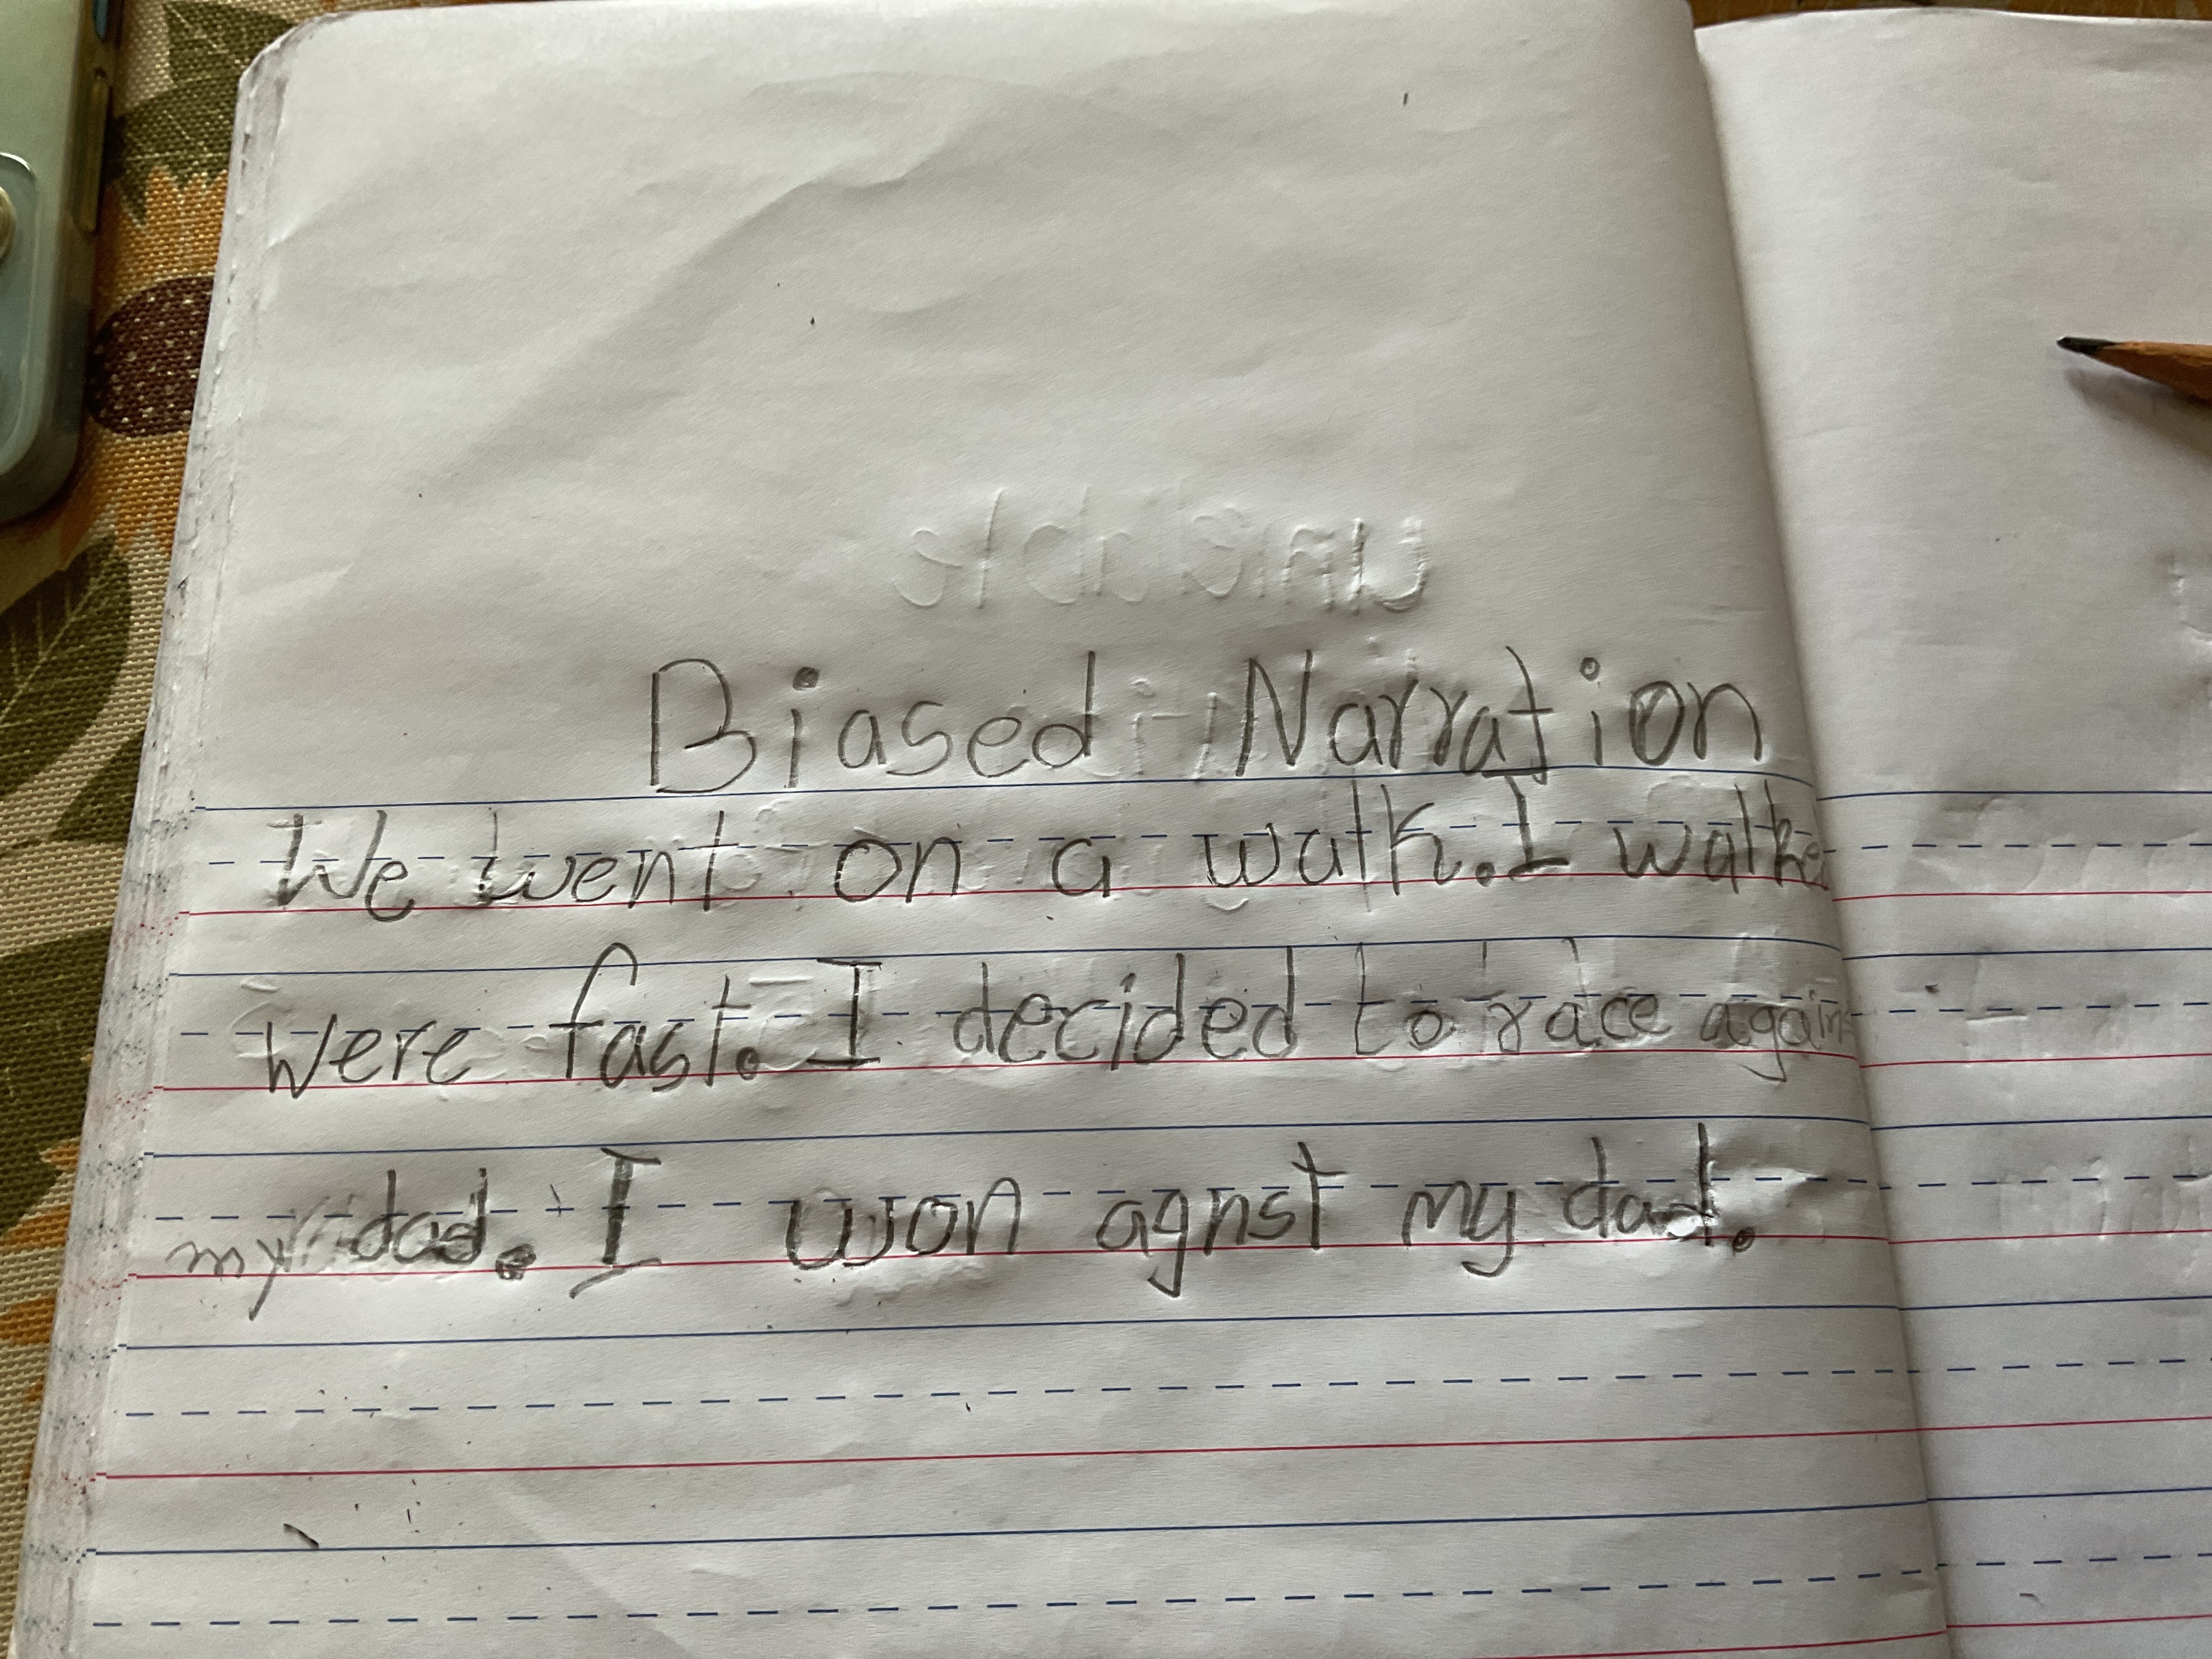 Biased Narration
We went on a walk. I walke
were fast. I decided to race agains
my dad. I won agnst my dad.